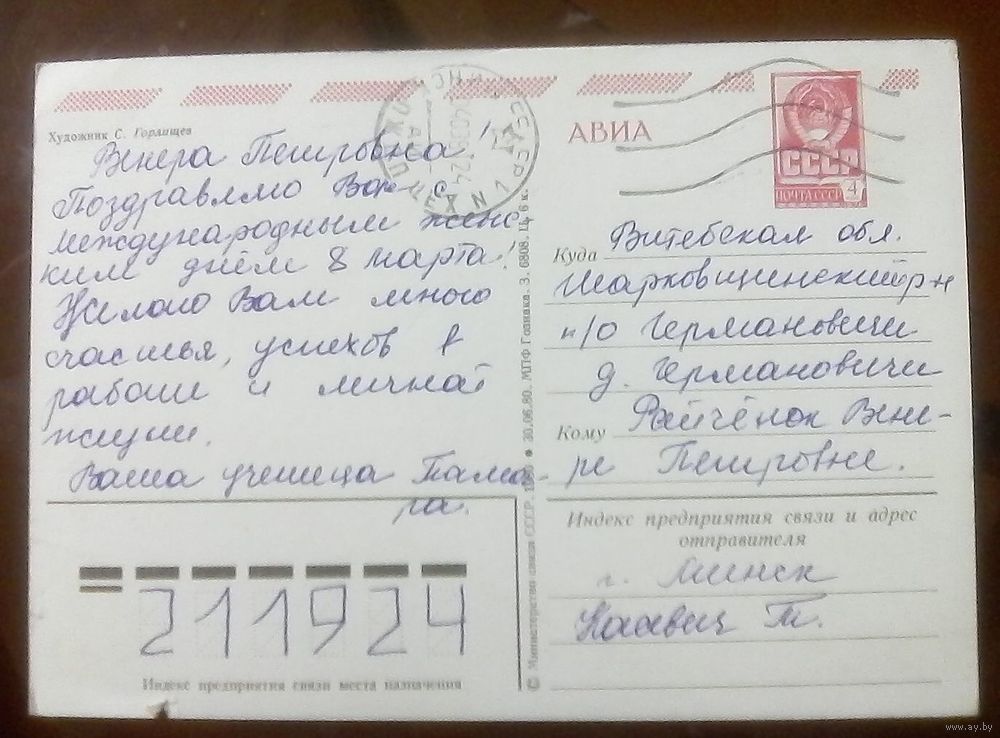 Художник С. Горлищев
Венера Петровна!
Поздравляю Вас с
международным женс
ким днём 8 марта!
Желаю Вам много
счастья, успехов в
работе и личной
жизни.
Ваша ученица Тама-
ра.
АВИА
СССР
ПОЧТА СССР 4
Куда Витебская обл.
Шарковщинский р-н
п/о Германовичи
д. Германовичи
Кому Рейчёнок Вене-
ре Петровне.
Индекс предприятия связи и адрес
отправителя
г. Минск
Т.
211924
Индекс предприятия связи места назначения
© Министерство связи СССР. 30.06.80. МПФ Гознака. З. 6808. Ц. 6 к.
www.ay.by